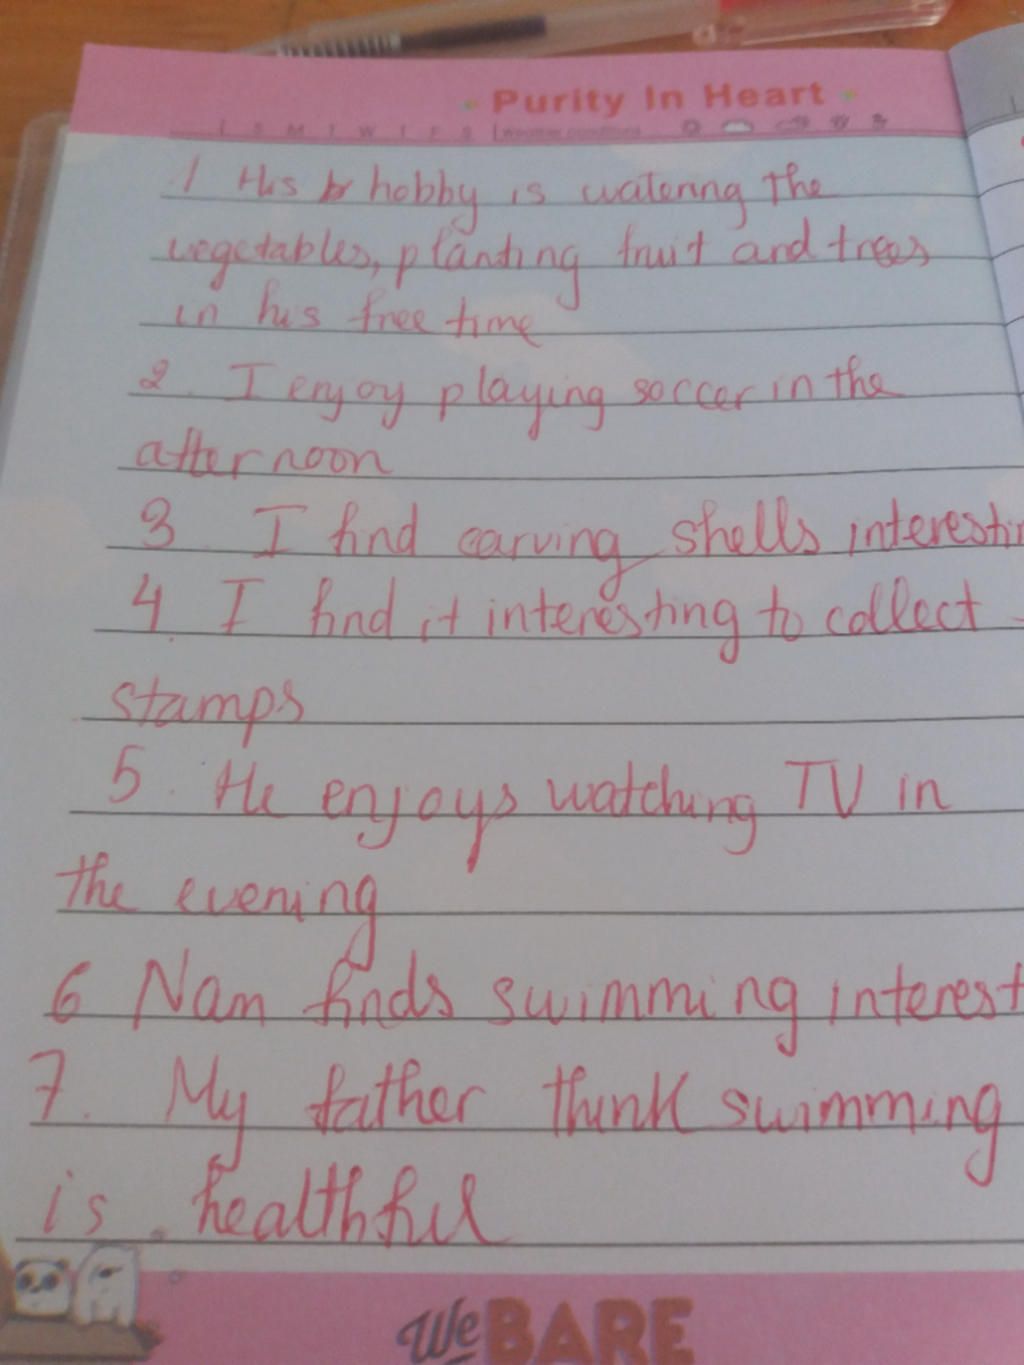 Purity In Heart
S M T W T F S Weather condition
1 His hobby is watering the
vegetables, planting fruit and trees
in his free time
2. I enjoy playing soccer in the
afternoon
3. I find carving shells interesti
4. I find it interesting to collect
stamps
5. He enjoys watching TV in
the evening
6 Nam finds swimming interest
7. My father think swimming
is healthful
We BARE